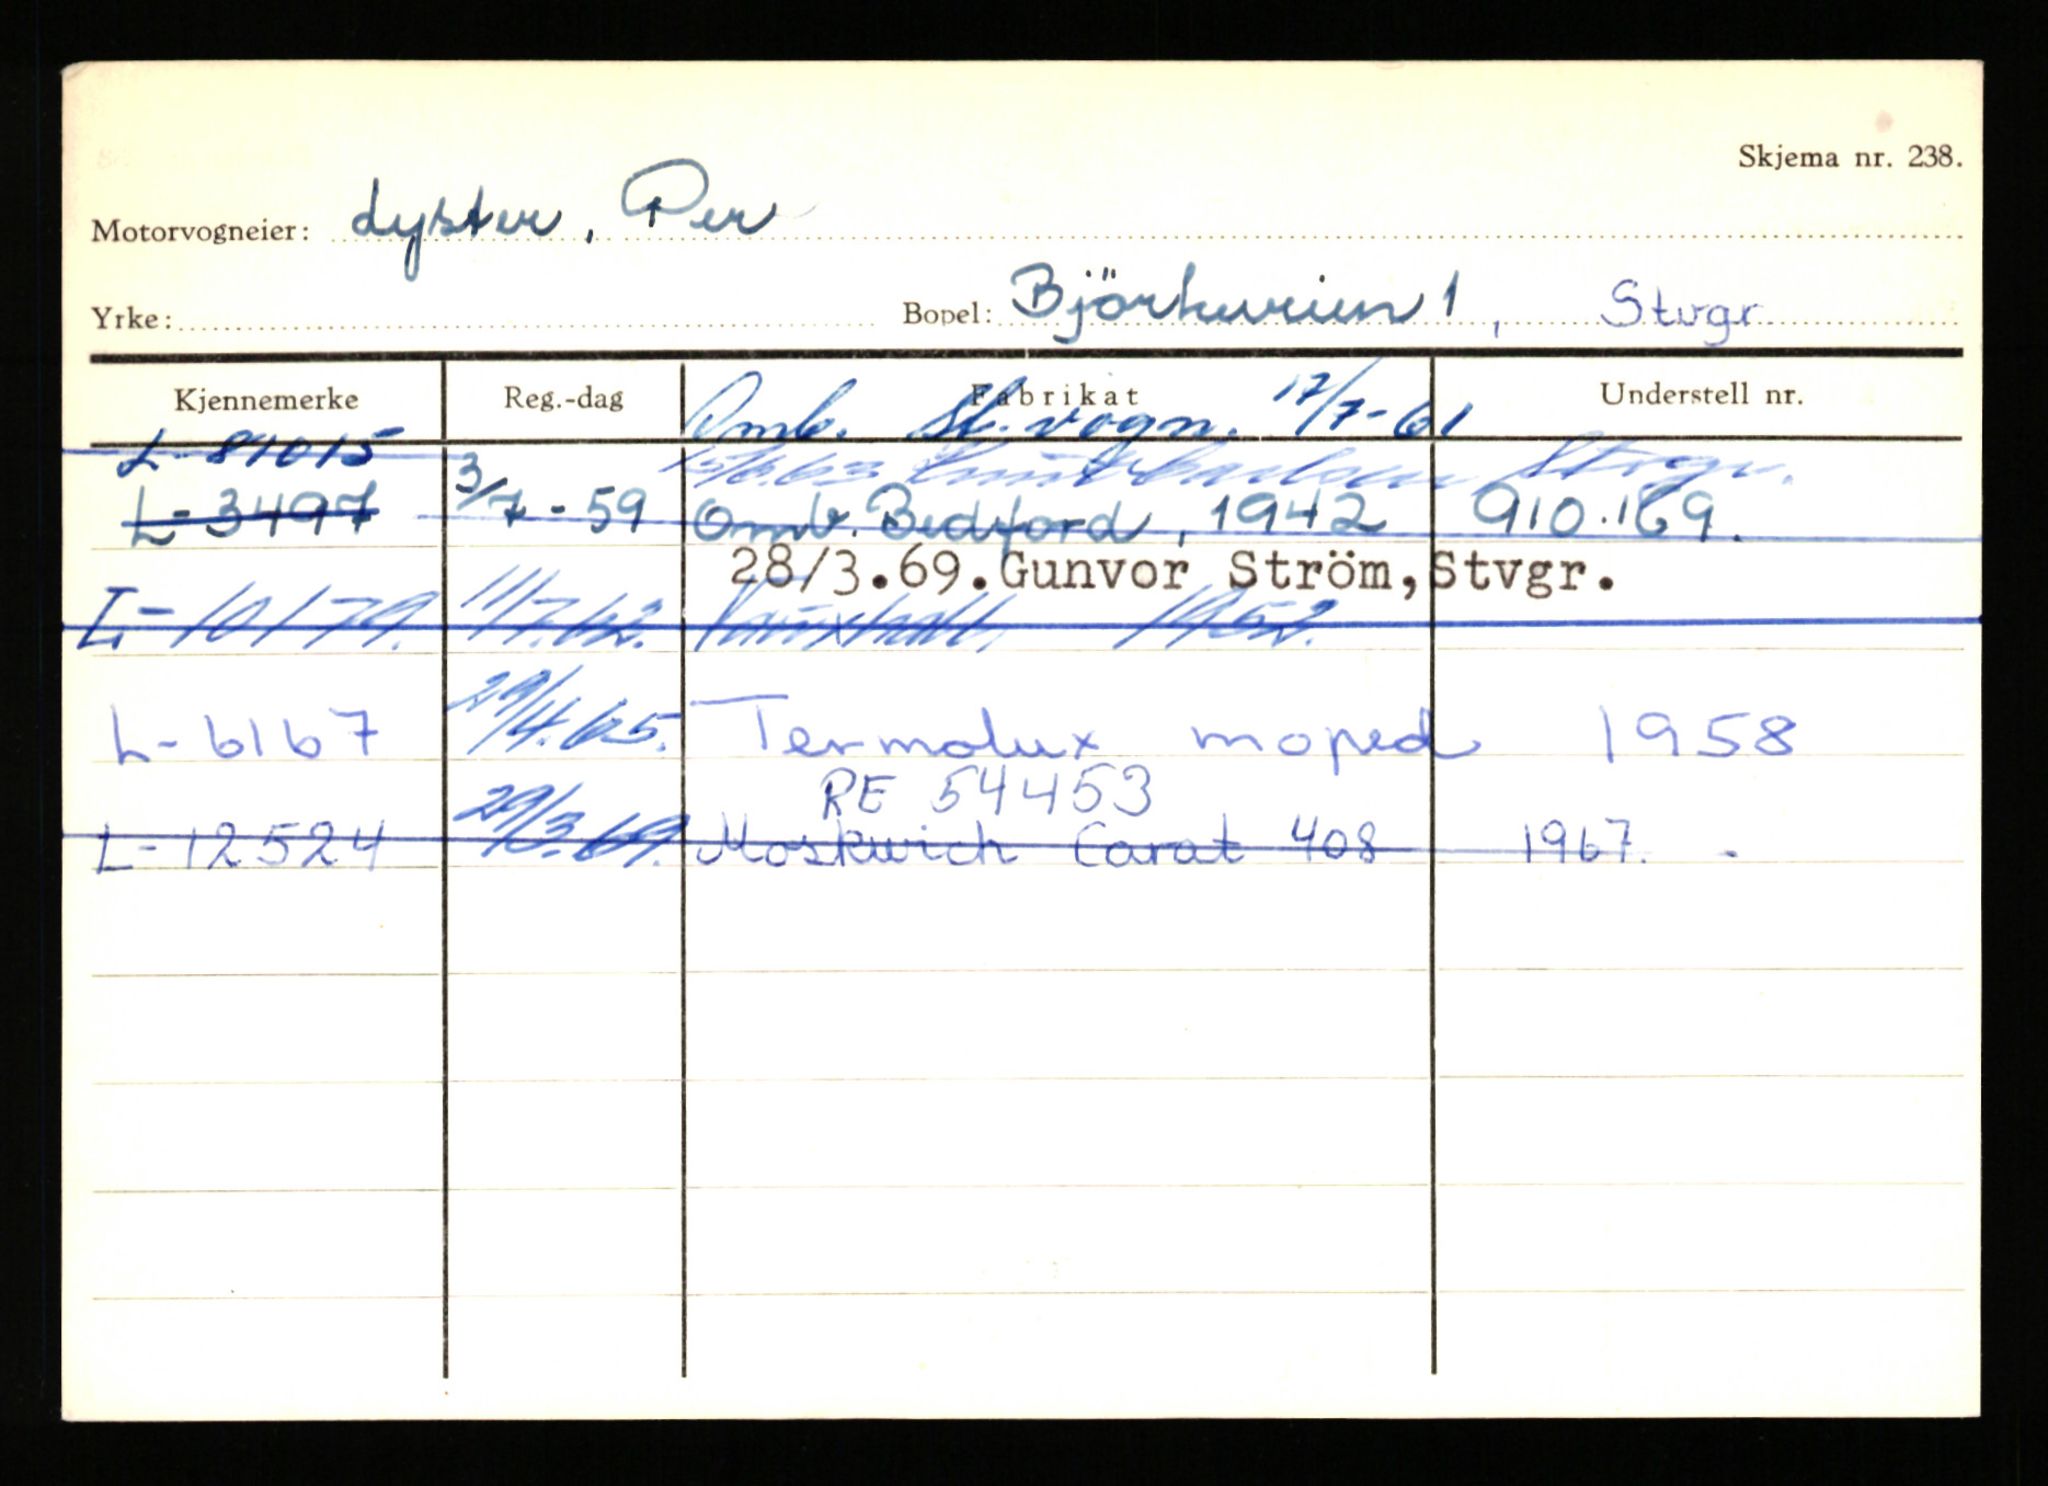 Skjema nr. 238.
Motorvogneier: Lyster, Per
Yrke: Bopel: Björkveien 1, Stvgr
Kjennemerke Reg.-dag Fabrikat Understell nr.
Omb. St. vogn. 17/7-61
L-81015 Stvgr.
L-3497 3/7-59 Omb. Bedford, 1942 910.169.
28/3.69.Gunvor Ström,Stvgr.
L-10179. 11/7.62. Vauxhall, 1952.
L-6167 29/4.65. Termolux moped 1958
RE 54453
L-12524 29/3.69. Moskwich Carat 408 1967.